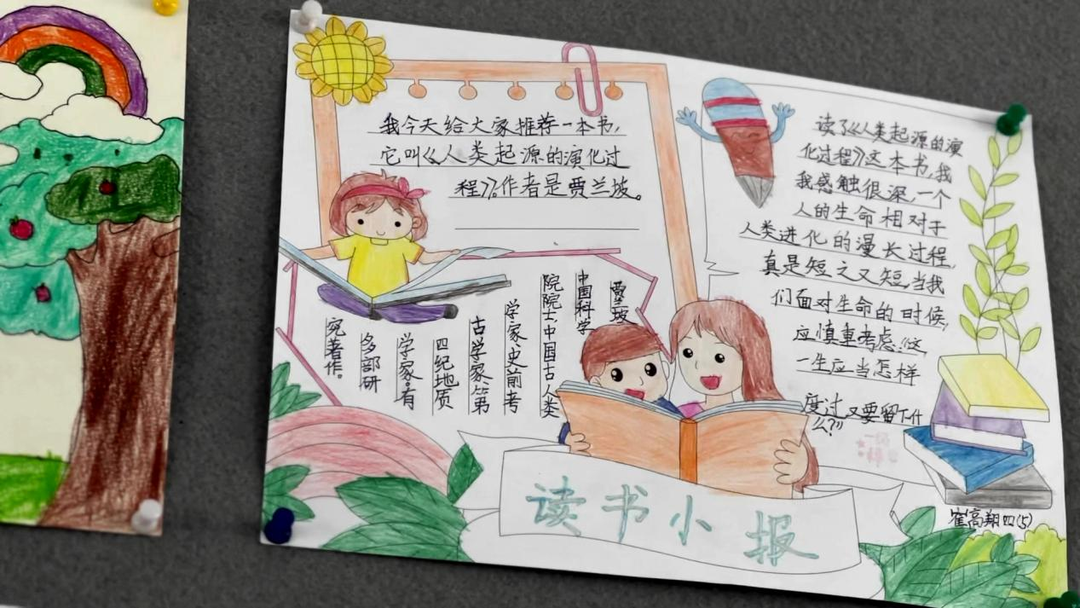 我今天给大家推荐一本书,
它叫《人类起源的演化过
程》。作者是贾兰坡。
贾兰坡
中国科学
院院士中国古人类
学家史前考
古学家、第
四纪地质
学家。有
多部研
究著作。
读了《人类起源的演
化过程》这本书,我
我感触很深,一个
人的生命相对于
人类进化的漫长过程,
真是短之又短,当我
们面对生命的时候,
应慎重考虑:“这
一生应当怎样
度过,又要留下什
么?”
读书小报
崔高翔四(5)